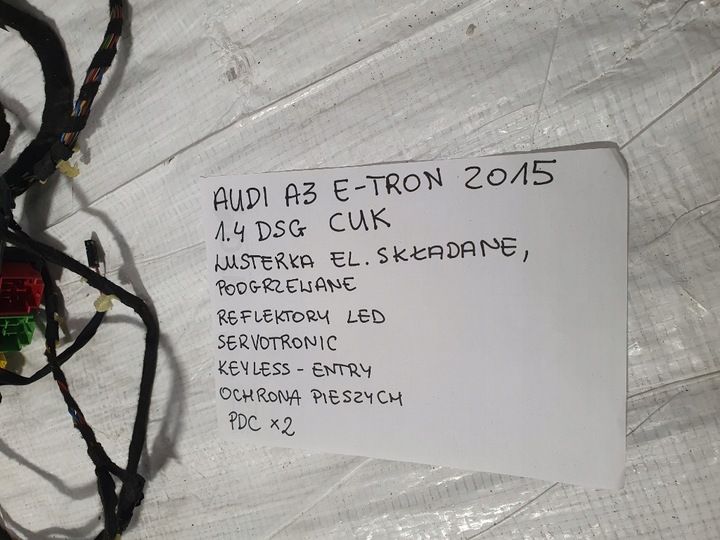 AUDI A3 E-TRON 2015
1.4 DSG CUK
LUSTERKA EL. SKŁADANE,
PODGRZEWANE
REFLEKTORY LED
SERVOTRONIC
KEYLESS - ENTRY
OCHRONA PIESZYCH
PDC x2